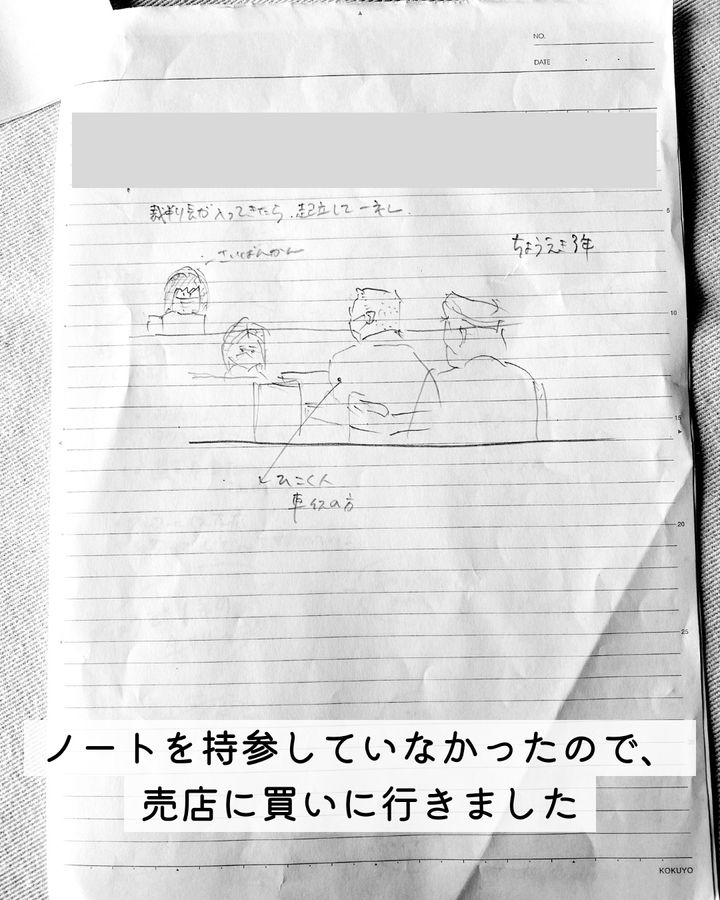 NO.
DATE
裁判長が入ってきたら、起立して一礼.
さいばんかん
ちょうえき3年
5
10
15
ひこく人
車イスの方
20
25
ノートを持参していなかったので、
売店に買いに行きました
KOKUYO